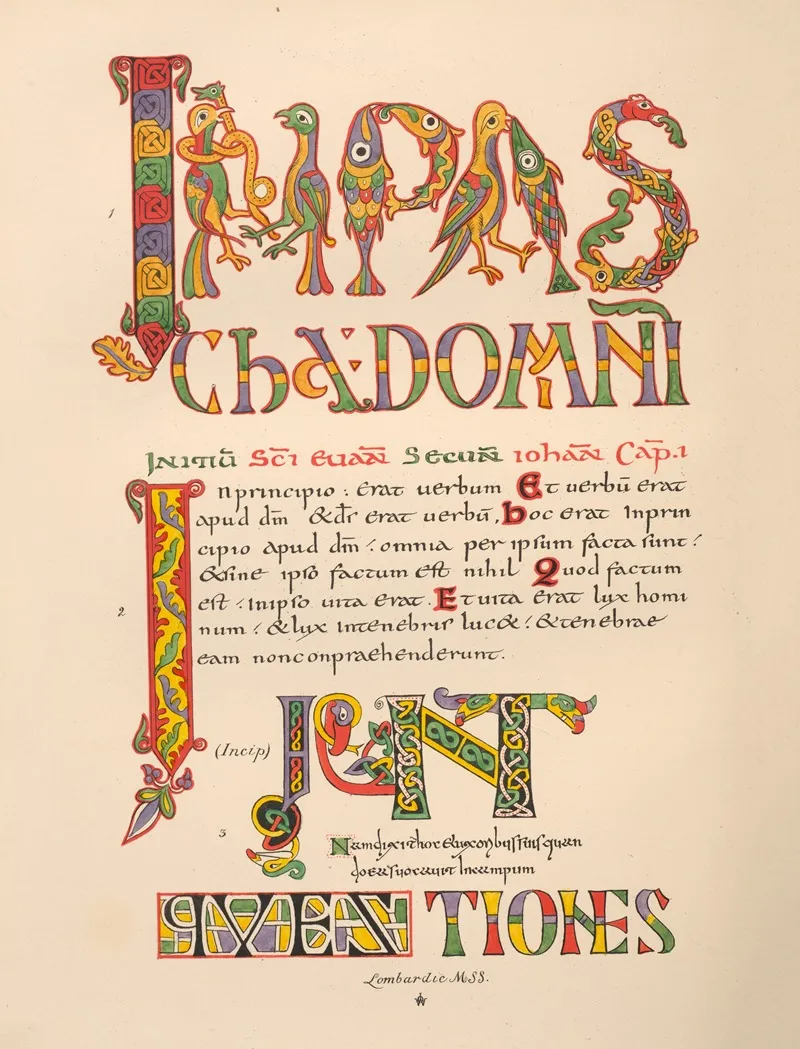 1
INPAS
ChA:DOMNĪ
INITIŪ SC̄I EUAN̄ SECUN̄ IOHAN̄ CAP̄.I
2
Inprincipio : erat uerbum Et uerbū erat
apud dm̄ &ds̄ erat uerbū, hoc erat Inprin
cipio apud dm̄ : omnia per ipsum facta sunt :
&sine ipso factum est nihil Quod factum
est : Inipso uita erat. Et uita erat lux homi
num : &lux intenebris luc& : &tenebrae
eam nonconpraehenderunt.
(Incip)
3
TIONES
Lombardic MSS.